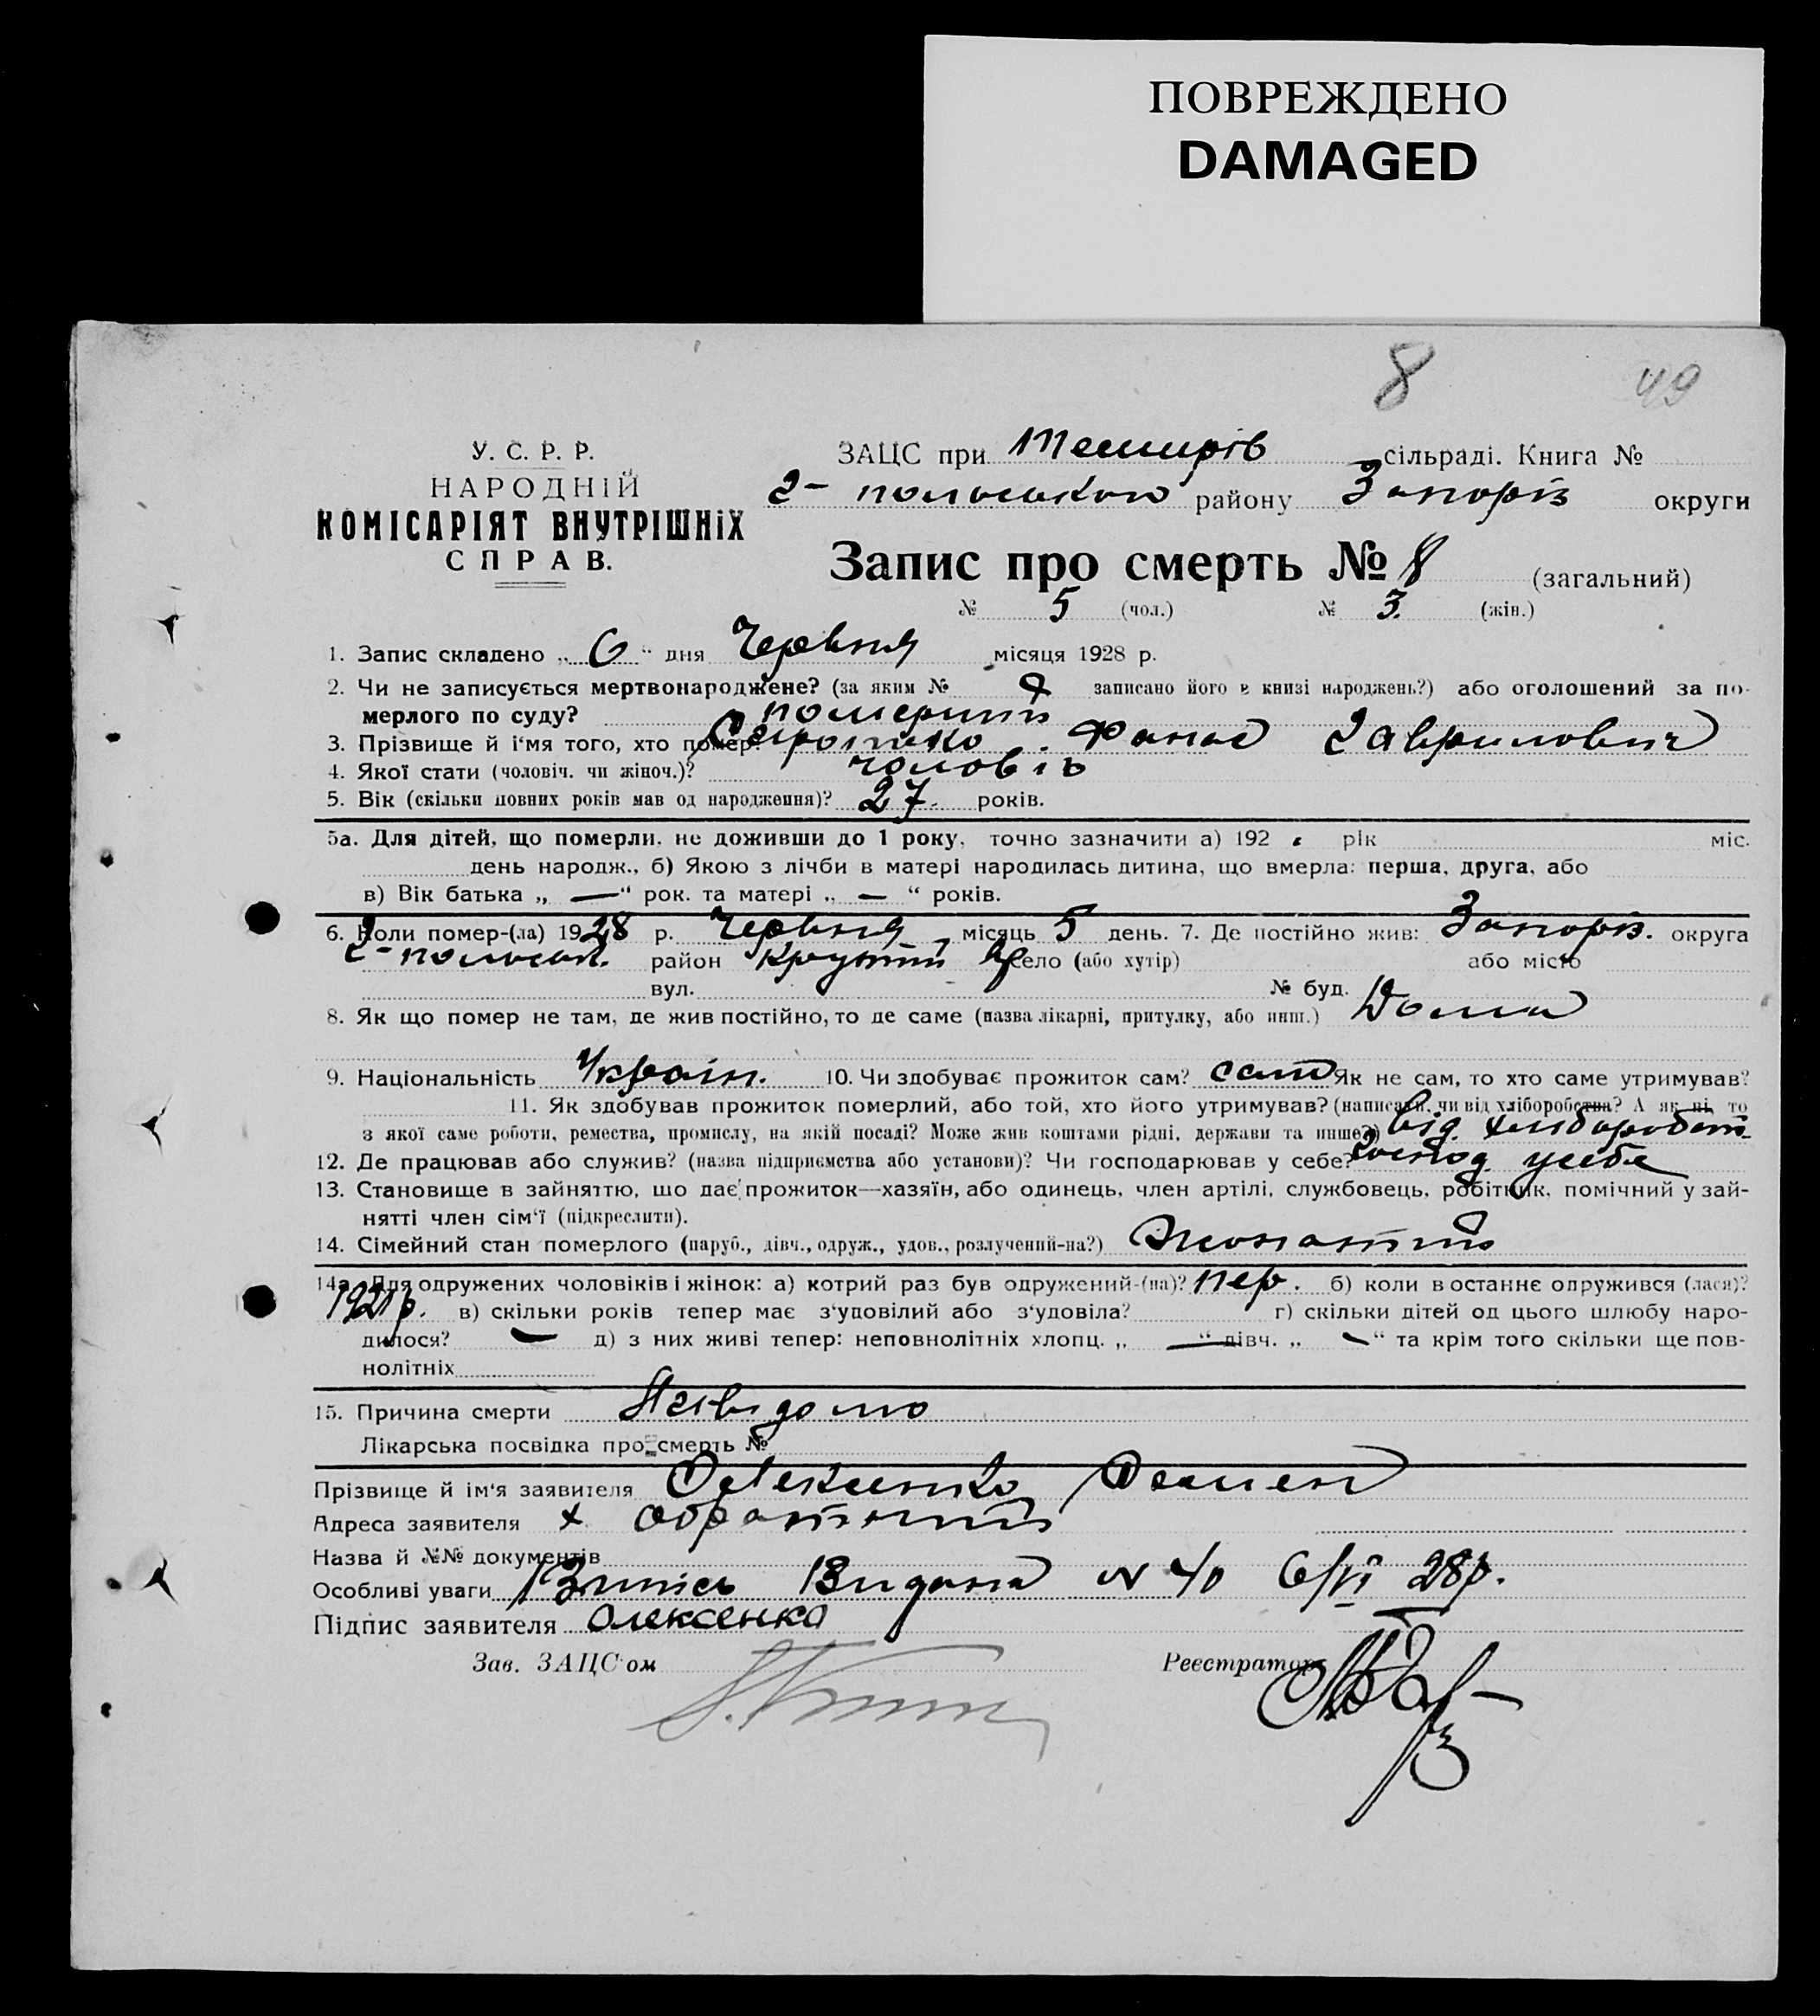 ПОВРЕЖДЕНО
DAMAGED
8 49
У. С. Р. Р.
НАРОДНІЙ
КОМІСАРІЯТ ВНУТРІШНІХ
СПРАВ.
ЗАЦС при Темирів сільраді. Книга №
Г-польського району Запоріз округи
Запис про смерть № 8 (загальний)
№ 5 (чол.) № 3. (жін.)
1. Запис складено „ 6 “ дня Червня місяця 1928 р.
2. Чи не записується мертвонароджене? (за яким № записано його в книзі народжень?) або оголошений за по-
мерлого по суду? померший
3. Прізвище й і'мя того, хто помер Фанас Гаврилович
4. Якої стати (чоловіч. чи жіноч.)? чоловіч
5. Вік (скільки повних років мав од народження)? 27. років.
5а. Для дітей, що померли, не доживши до 1 року, точно зазначити а) 192 рік міс.
день народж., б) Якою з лічби в матері народилась дитина, що вмерла: перша, друга, або
в) Вік батька „ — “ рок. та матері „ — “ років.
6. Коли помер-(ла) 1928 р. Червня місяць 5 день. 7. Де постійно жив: Запоріз. округа
Г-польськ. район Крутий Яр село (або хутір) або місто
вул. № буд.
8. Як що помер не там, де жив постійно, то де саме (назва лікарні, притулку, або инш.) Дома
9. Національність Україн. 10. Чи здобуває прожиток сам? сам Як не сам, то хто саме утримував?
11. Як здобував прожиток померлий, або той, хто його утримував? (написати, чи від хліборобства? А як ні, то
з якої саме роботи, ремества, промислу, на якій посаді? Може жив коштами рідні, держави та инше?) від хліборобст.
12. Де працював або служив? (назва підприємства або установи)? Чи господарював у себе? господ. у себе
13. Становище в зайняттю, що дає прожиток—хазяїн, або одинець, член артілі, службовець, робітник, помічний у зай-
нятті член сім'ї (підкреслити).
14. Сімейний стан померлого (паруб., дівч., одруж., удов., розлучений-на?) Жонатий
14а. Для одружених чоловіків і жінок: а) котрий раз був одружений-(на)? пер. б) коли в останнє одружився (лася)?
1921 р. в) скільки років тепер має з'удовілий або з'удовіла? г) скільки дітей од цього шлюбу наро-
дилося? — д) з них живі тепер: неповнолітніх хлопц. „ — “ дівч. „ — “ та крім того скільки ще пов-
нолітніх
15. Причина смерти Невідомо
Лікарська посвідка про смерть №
Прізвище й ім'я заявителя Олексенко Демен
Адреса заявителя х
Назва й №№ документів
Особливі уваги Випись Видана N 40 6/VI 28 р.
Підпис заявителя Олексенко
Зав. ЗАЦС'ом Реєстратор